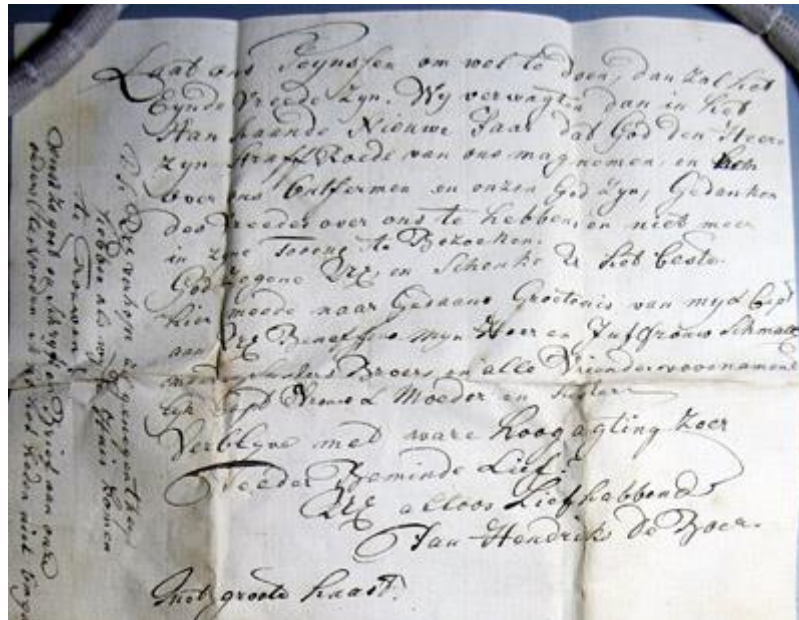 Laat ons Peynssen om wel te doen, dan zal het
Eynde Vreede zyn. Wy verwagten dan in het
Aan staande Nieuwe Jaar dat God den Heere
zyn straff Roede van ons mag nemen, en
over ons Ontfermen en onzen God zyn, Gedanken
des Vreedes over ons te hebben, en niet meer
in zyne Toorne te Bezoeken.
God zegene UE, en Schenke U het beste.
hier meede naar Gedaane Groetenis van my & Capt
aan UE Beneffens Myn Heer en Juffrouw Schmalts
susters Broers, en alle Vrienden voornament
lyk Capt Vrouw & Moeder en suster
Verblyve met ware hoogagting zeer
Teeder Beminde Lief!
UE alloos Liefhebbende
Jan Hendrik de Boer.
Met groote haast.
P.S. verhope genegentheyd
hebben als wy Huis komen
te Trouwen
goet en schryft een Brief aen onze